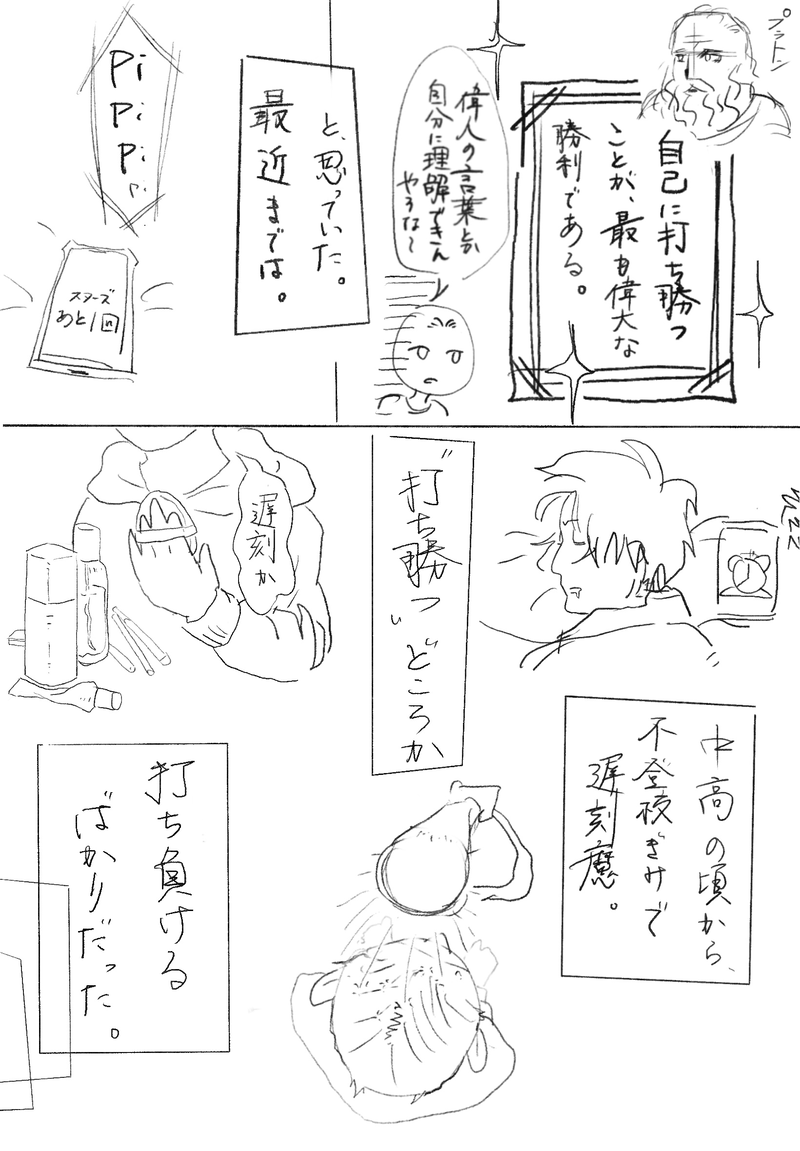 プラトン
自己に打ち勝つ
ことが、最も偉大な
勝利である。
偉人の言葉とか
自分に理解できん
やろな〜
と、思っていた。
最近までは。
Pi
Pi
Pi
Pi
スヌーズ
あと1回
中高の頃から、
不登校ぎみで
遅刻魔。
"打ち勝つ"どころか
遅刻か
打ち負ける
ばかりだった。